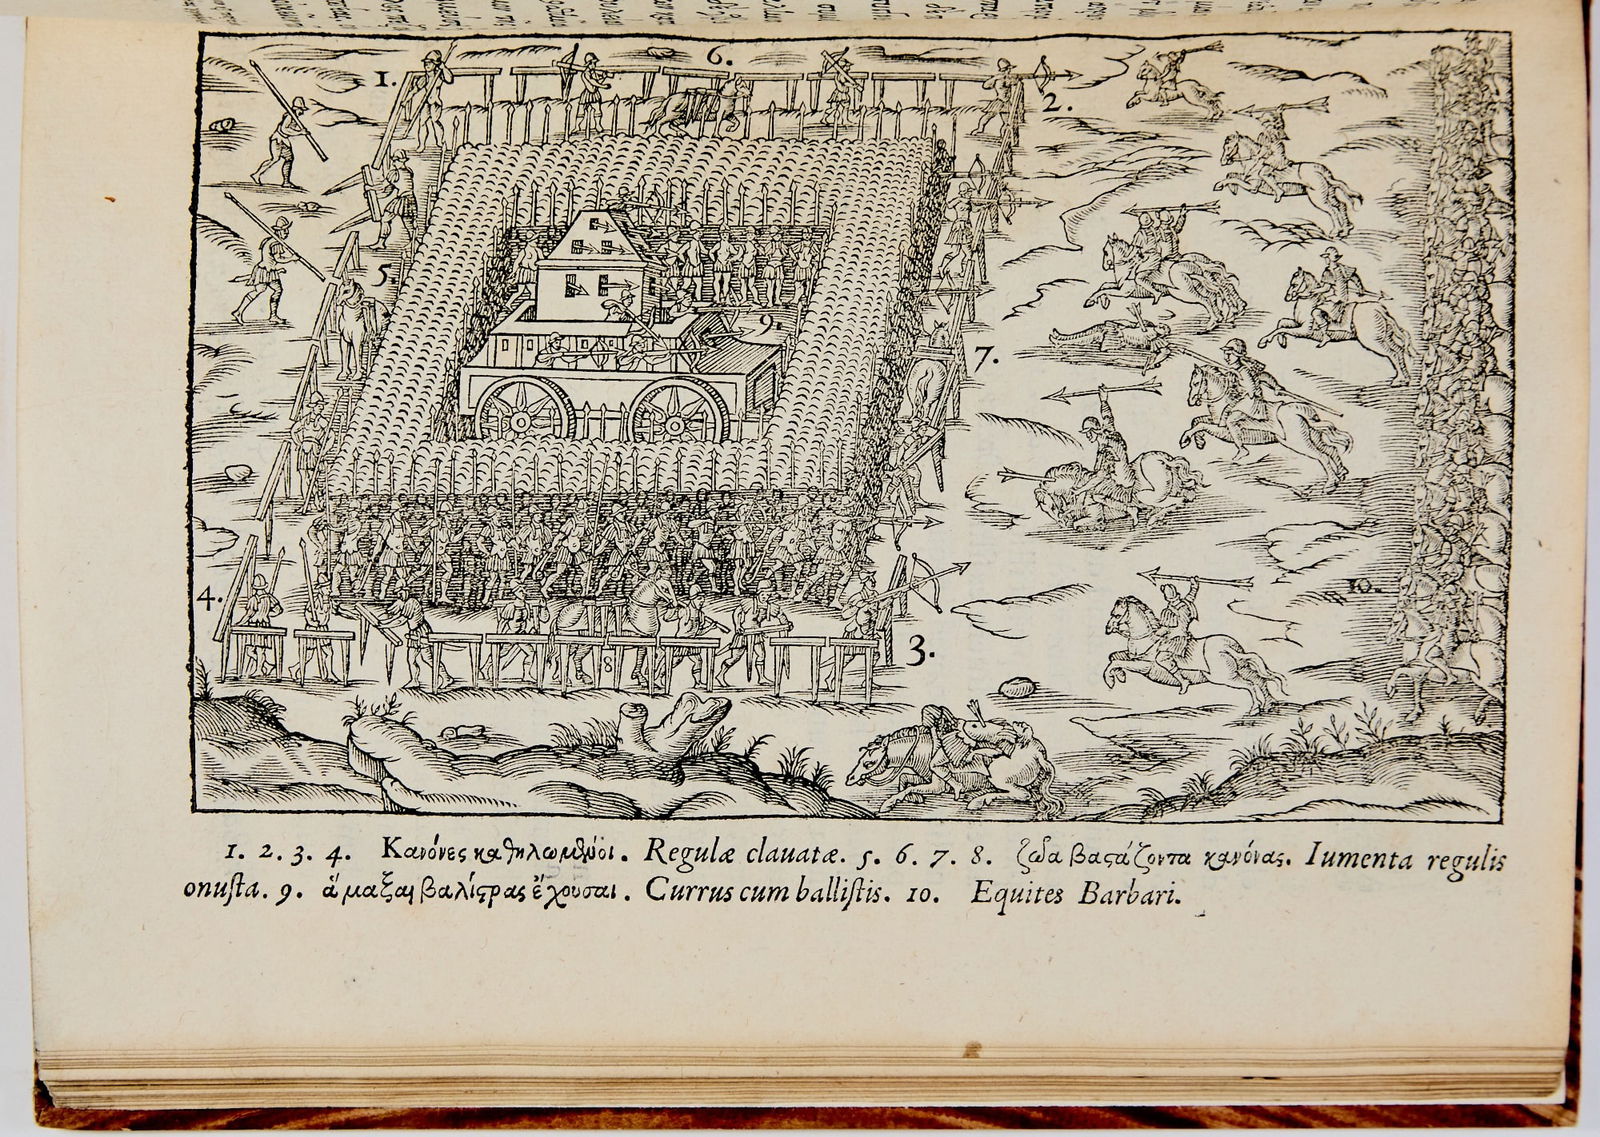 1.
6.
2.
5.
9.
7.
10.
4.
8
3.
1. 2. 3. 4. Κανόνες καθηλωμένοι. Regulæ clauatæ. 5. 6. 7. 8. ζῶα βαςάζοντα κανόνας. Iumenta regulis
onuſta. 9. ἅμαξαι βαλίςρας ἔχουσαι. Currus cum balliſtis. 10. Equites Barbari.